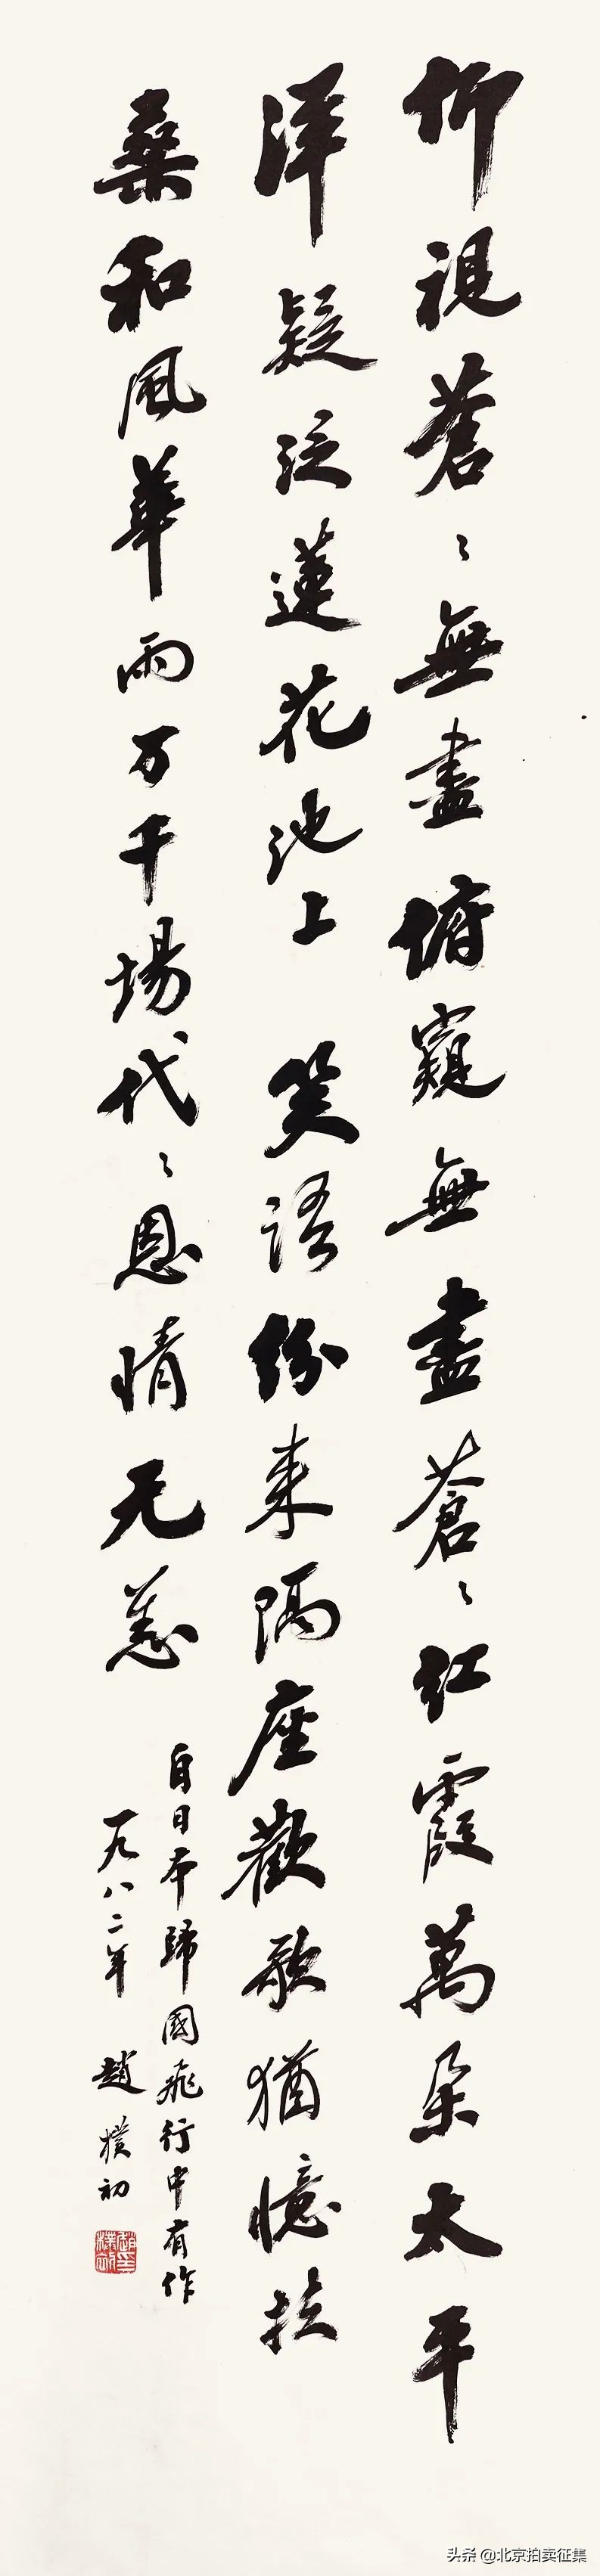 仰視蒼〻無盡俯窺無盡蒼〻紅霞萬朵太平
洋疑泛蓮花池上 笑語紛来隔座歡歌猶憶扶
桑和風華雨万千場代〻恩情无恙
自日本歸國飛行中有作
一九八二年 趙樸初
趙樸初
头条 @北京拍卖征集